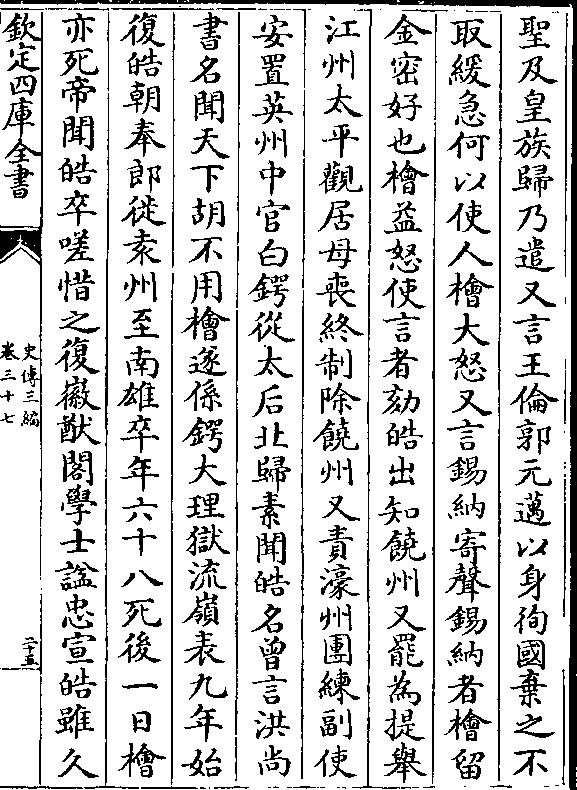 聖及皇族歸乃遣又言王倫郭元邁以身殉國棄之不
取緩急何以使人檜大怒又言錫納寄聲錫納者檜留
金密好也檜益怒使言者劾皓出知饒州又罷為提舉
江州太平觀居母喪終制除饒州又責濠州團練副使
安置英州中官白鍔從太后北歸素聞皓名曾言洪尚
書名聞天下胡不用檜遂係鍔大理獄流嶺表九年始
復皓朝奉郎徙袁州至南雄卒年六十八死後一日檜
亦死帝聞皓卒嗟惜之復徽猷閣學士諡忠宣皓雖久
欽定四庫全書
史傳三編
卷三十七
二十五